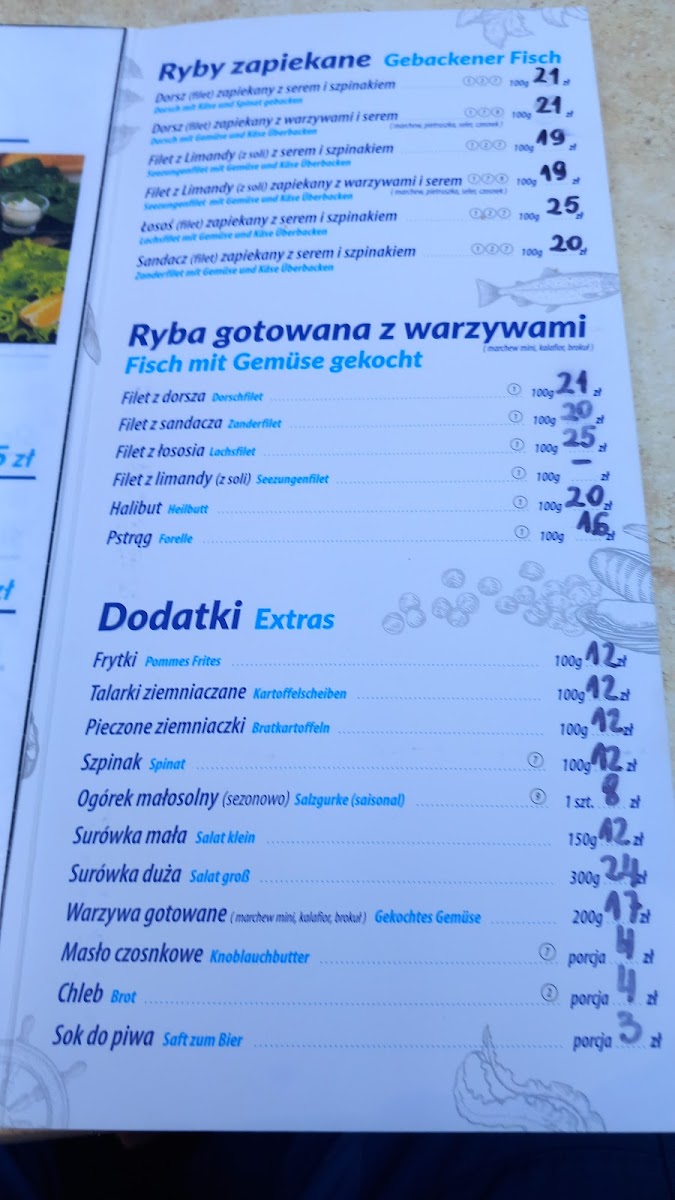 Ryby zapiekane Gebackener Fisch
Dorsz (filet) zapiekany z serem i szpinakiem 1 2 7 100g 21 zł
Dorsch mit Käse und Spinat gebacken
Dorsz (filet) zapiekany z warzywami i serem 1 7 8 100g 21 zł
Dorsch mit Gemüse und Käse Überbacken (marchew, pietruszka, seler, czosnek)
Filet z Limandy (z soli) z serem i szpinakiem 1 2 7 100g 19 zł
Seezungenfilet mit Gemüse und Käse Überbacken
Filet z Limandy (z soli) zapiekany z warzywami i serem 1 7 8 100g 19 zł
Seezungenfilet mit Gemüse und Käse Überbacken (marchew, pietruszka, seler, czosnek)
Łosoś (filet) zapiekany z serem i szpinakiem 1 2 7 100g 25 zł
Lachsfilet mit Gemüse und Käse Überbacken
Sandacz (filet) zapiekany z serem i szpinakiem 1 2 7 100g 20 zł
Zanderfilet mit Gemüse und Käse Überbacken
Ryba gotowana z warzywami
(marchew mini, kalafior, brokuł)
Fisch mit Gemüse gekocht
Filet z dorsza Dorschfilet 100g 21 zł
Filet z sandacza Zanderfilet 100g 20 zł
Filet z łososia Lachsfilet 100g 25 zł
Filet z limandy (z soli) Seezungenfilet 100g – zł
Halibut Heilbutt 100g 20 zł
Pstrąg Forelle 100g 16 zł
Dodatki Extras
Frytki Pommes Frites 100g 12 zł
Talarki ziemniaczane Kartoffelscheiben 100g 12 zł
Pieczone ziemniaczki Bratkartoffeln 100g 12 zł
Szpinak Spinat 7 100g 12 zł
Ogórek małosolny (sezonowo) Salzgurke (saisonal) 9 1 szt. 8 zł
Surówka mała Salat klein 150g 12 zł
Surówka duża Salat groß 300g 24 zł
Warzywa gotowane (marchew mini, kalafior, brokuł) Gekochtes Gemüse 200g 17 zł
Masło czosnkowe Knoblauchbutter 7 porcja 4 zł
Chleb Brot 2 porcja 4 zł
Sok do piwa Saft zum Bier porcja 3 zł
5 zł
zł